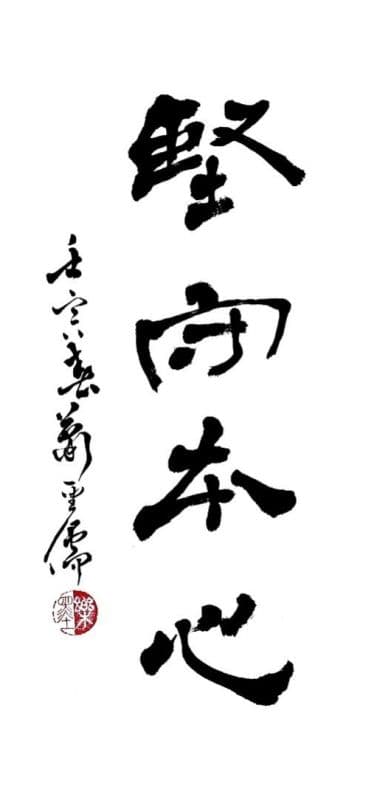 堅守本心
壬寅 蕭雲儒